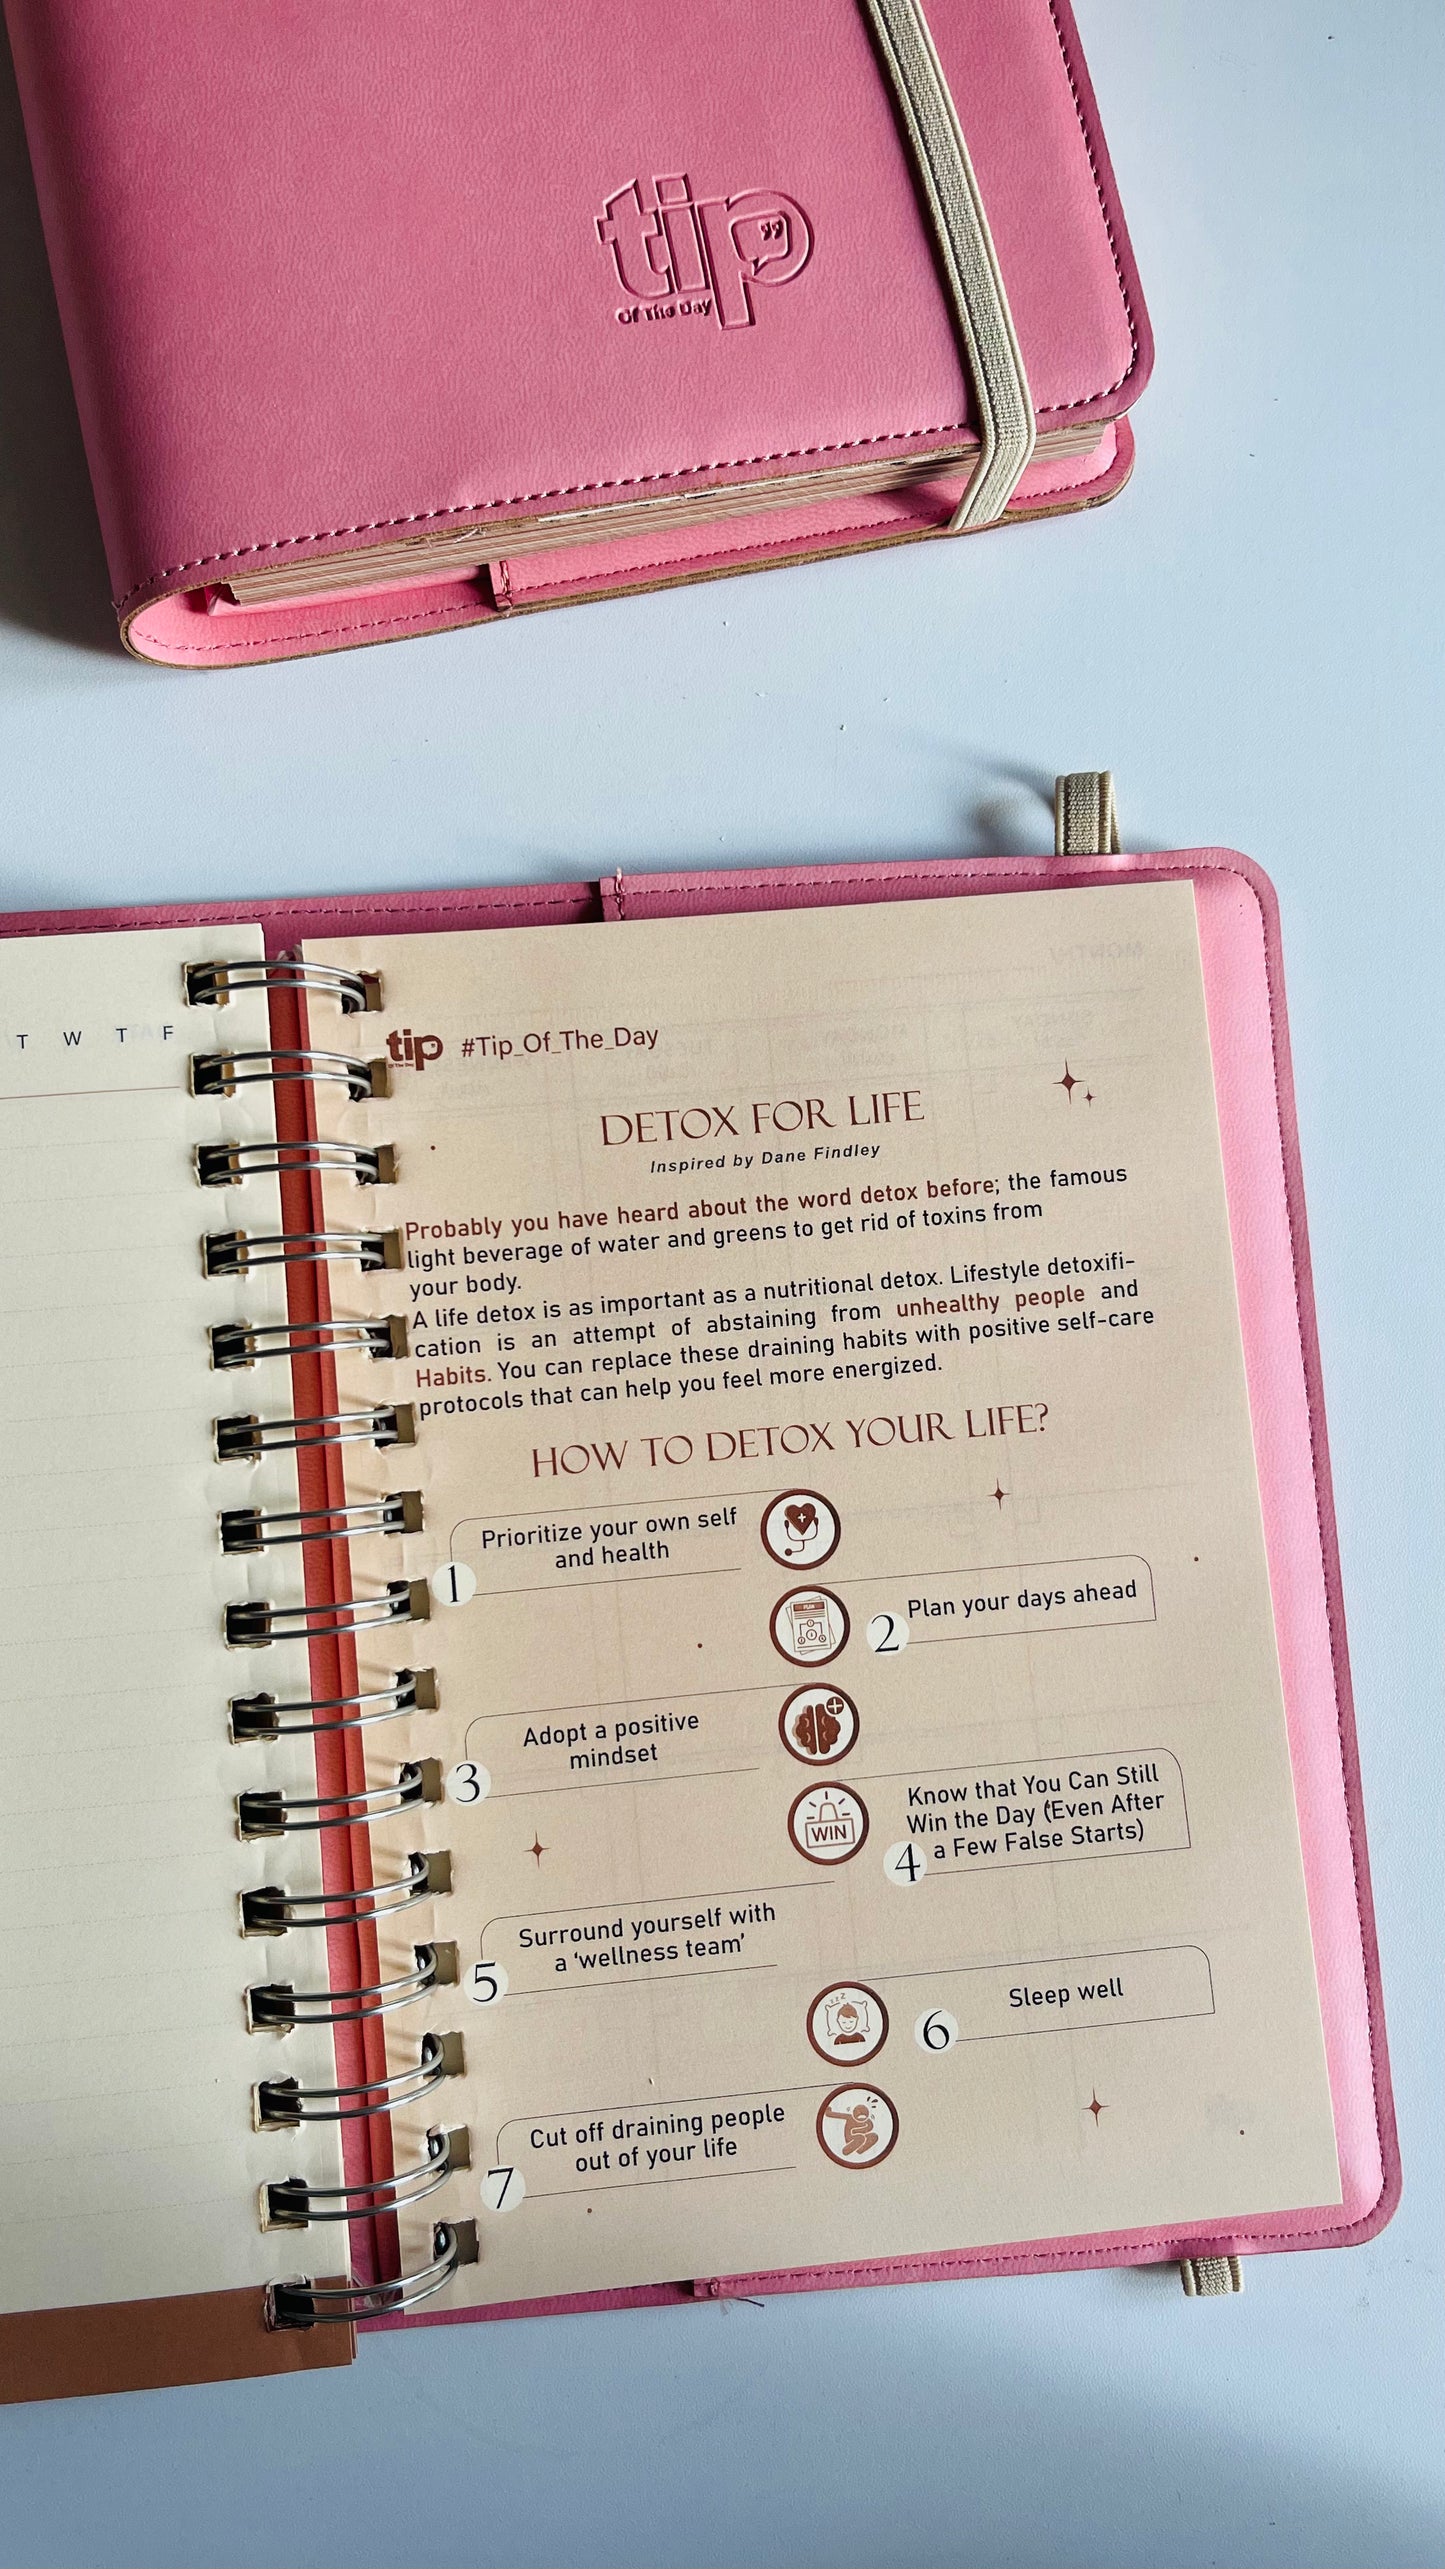 tip
Of The Day
T W T F
tip #Tip_Of_The_Day
Of The Day
DETOX FOR LIFE
Inspired by Dane Findley
Probably you have heard about the word detox before; the famous
light beverage of water and greens to get rid of toxins from
your body.
A life detox is as important as a nutritional detox. Lifestyle detoxifi-
cation is an attempt of abstaining from unhealthy people and
Habits. You can replace these draining habits with positive self-care
protocols that can help you feel more energized.
HOW TO DETOX YOUR LIFE?
Prioritize your own self
and health
1
PLAN
Plan your days ahead
2
Adopt a positive
mindset
3
WIN
Know that You Can Still
Win the Day (Even After
a Few False Starts)
4
Surround yourself with
a ‘wellness team’
5
zzZ
Sleep well
6
Cut off draining people
out of your life
7